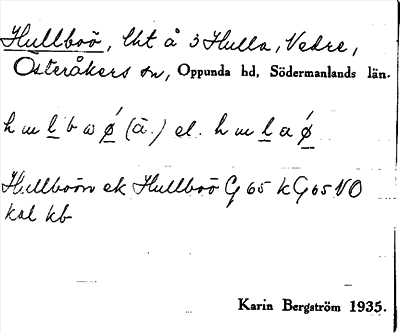 Hullboö, lht å 3 Hulla, Vedre,
Österåkers sn, Oppunda hd, Södermanlands län.
h u l b ω ǿ (ā.) el. h u l a ǿ
Hullboön ek Hullboö G 65 k G 65 VO
kal kb
Karin Bergström 1935.